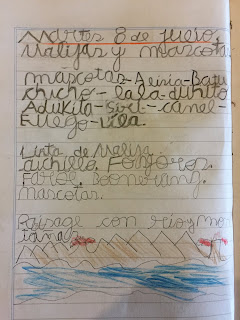 Martes 8 de Junio,
Valijas y mascota
mascotas-Alisia-Batu
chicho-lala-dunito
Adukita-sisi-canel-
Fuego-lila.
Linta de Valisa
cuchillo. Fosforos.
Farol. Boonerang.
mascotas.
Paisage con rio y mo
tañas